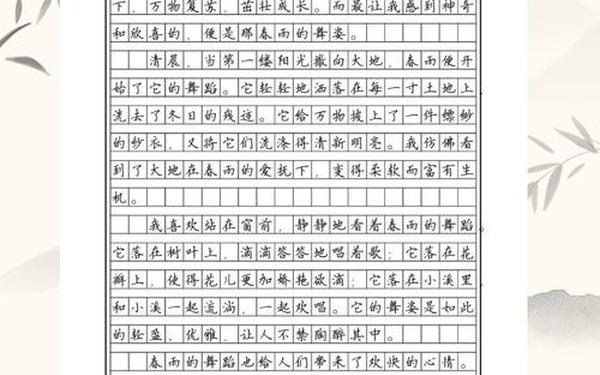 下，万物复苏，茁壮成长。而最让我感到神奇
和欣喜的，便是那春雨的舞姿。
清晨，当第一缕阳光撒向大地，春雨便开
始了它的舞蹈。它轻轻地洒落在每一寸土地上
洗去了冬日的残迹。它给万物披上了一件缥缈
的纱衣，又将它们洗涤得清新明亮。我仿佛看
到了大地在春雨的爱抚下，变得柔软而富有生
机。
我喜欢站在窗前，静静地看着春雨的舞蹈。
它落在树叶上，滴滴答答地唱着歌；它落在花
瓣上，使得花儿更加娇艳欲滴；它落在小溪里
和小溪一起流淌，一起欢唱。它的舞姿是如此
的轻盈、优雅，让人不禁陶醉其中。
春雨的舞蹈也给人们带来了欢快的心情。